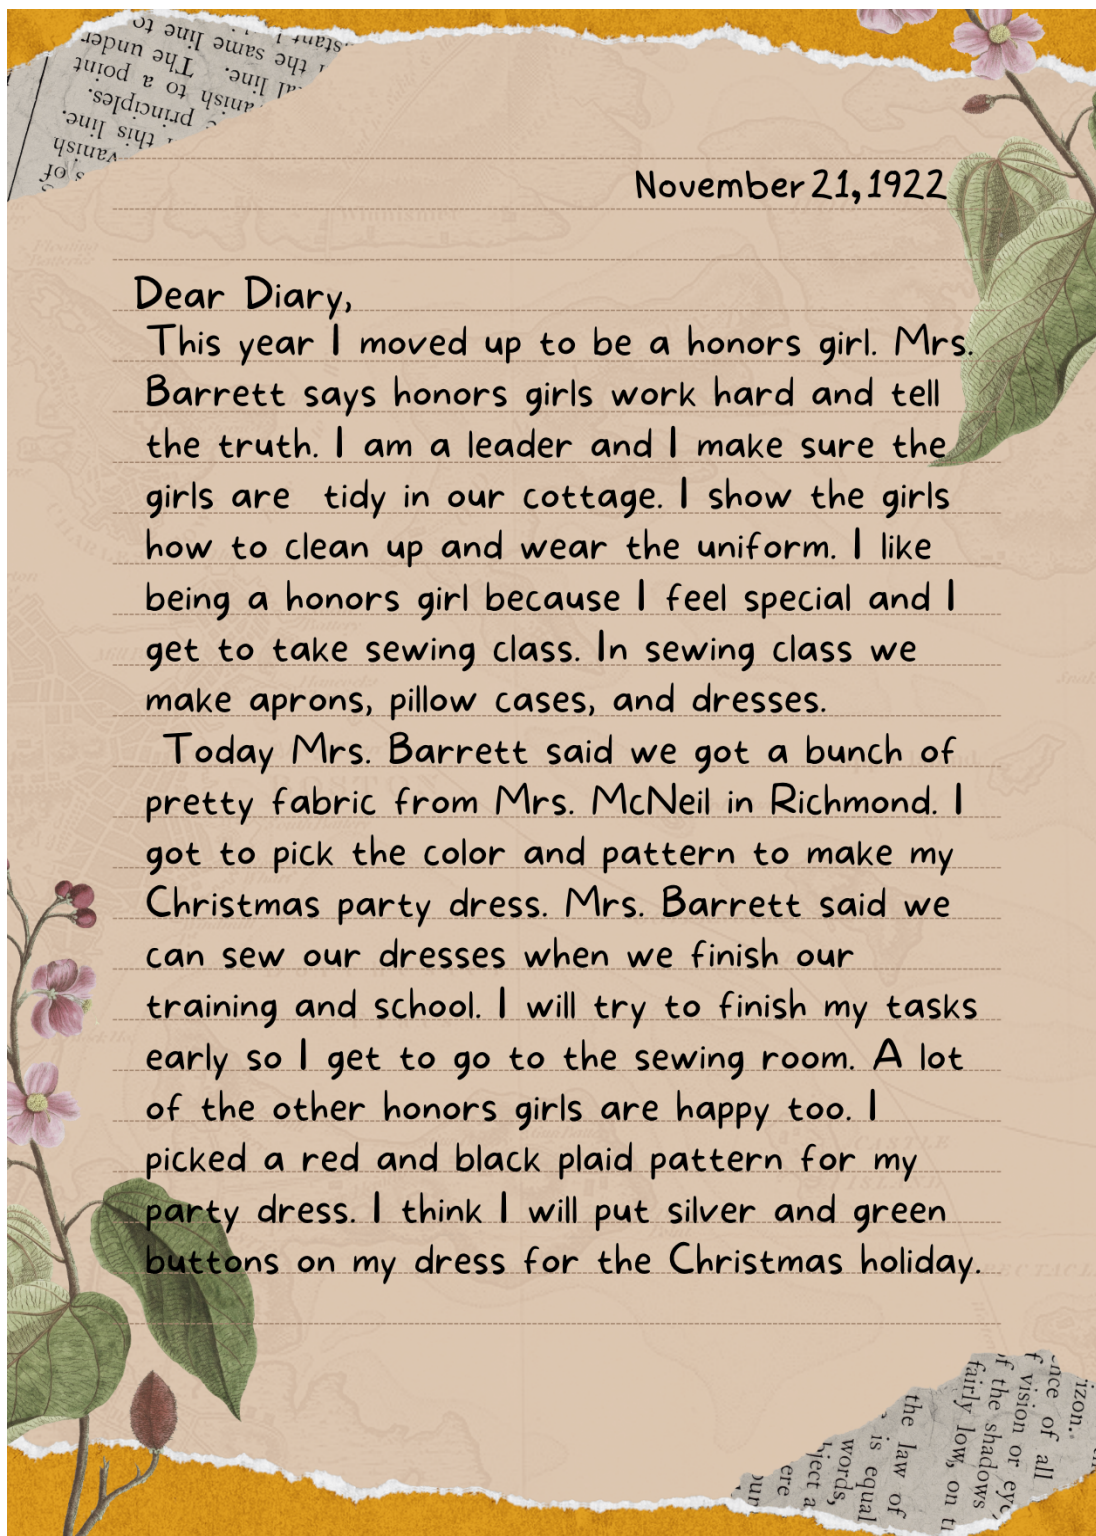 November 21, 1922
Dear Diary,
This year I moved up to be a honors girl. Mrs.
Barrett says honors girls work hard and tell
the truth. I am a leader and I make sure the
girls are tidy in our cottage. I show the girls
how to clean up and wear the uniform. I like
being a honors girl because I feel special and I
get to take sewing class. In sewing class we
make aprons, pillow cases, and dresses.
Today Mrs. Barrett said we got a bunch of
pretty fabric from Mrs. McNeil in Richmond. I
got to pick the color and pattern to make my
Christmas party dress. Mrs. Barrett said we
can sew our dresses when we finish our
training and school. I will try to finish my tasks
early so I get to go to the sewing room. A lot
of the other honors girls are happy too. I
picked a red and black plaid pattern for my
party dress. I think I will put silver and green
buttons on my dress for the Christmas holiday.
of
vanish
this line.
principles.
to a point
line. The under
the same line to
izon.
nce of all
f vision or eye
f the shadows
fairly low, on
the law of
is equal
words,